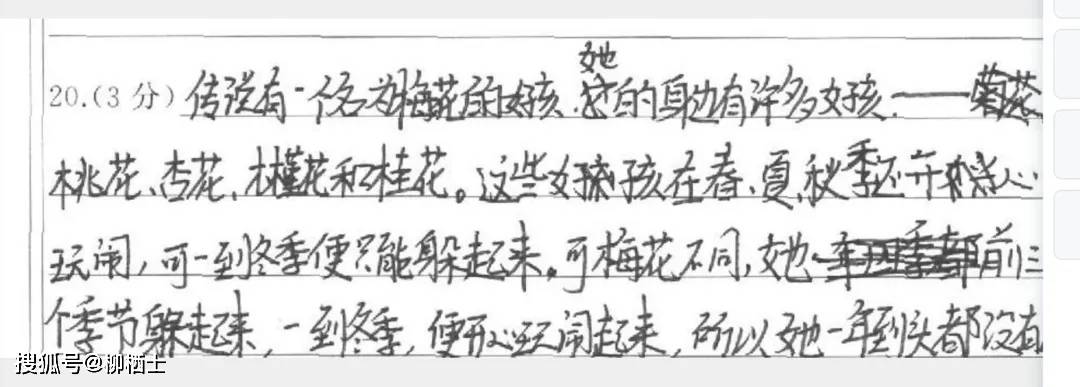 她
20.(3分) 传说有一个名为梅花的女孩.的身边有许多女孩.——菊花
桃花、杏花、槿花和桂花。这些女孩在春、夏、秋季还开心
玩闹,可一到冬季便只能躲起来。可梅花不同,她前三
个季节躲起来,一到冬季,便开心玩闹起来,所以她一年到头都没有
搜狐号@柳栖士